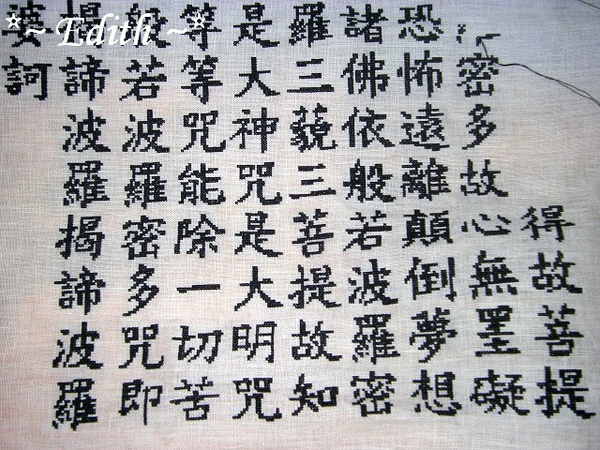 得故菩提
密多故心無罣礙
恐怖遠離顛倒夢想
諸佛依般若波羅密
羅三藐三菩提故知
是大神咒是大明咒
等等咒能除一切苦
般若波羅密多咒即
揭諦波羅揭諦波羅
婆訶
*~ Edith ~*